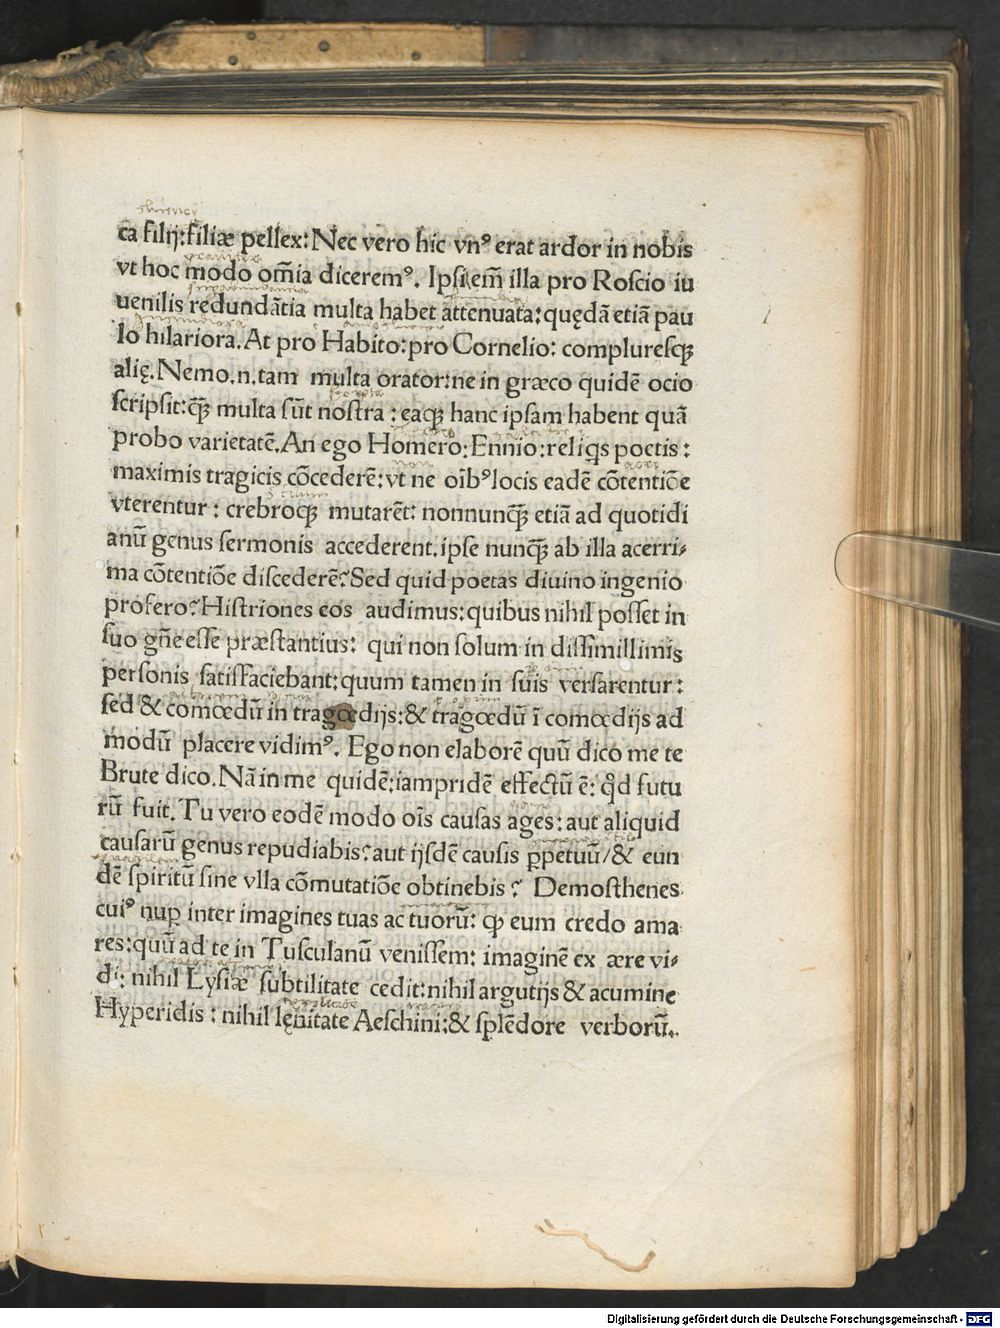 ca filij:filiæ pellex: Nec vero hic vnꝰ erat ardor in nobis
vt hoc modo om̃ia diceremꝰ. Ipſa em̃ illa pro Roſcio iu
uenilis redundãtia multa habet attenuata: quędã etiã pau
lo hilariora. At pro Habito: pro Cornelio: complureſqꝫ
alię. Nemo .n. tam multa orator: ne in græco quidẽ ocio
ſcripſit: q̃ꝫ multa ſũt noſtra : eaqꝫ hanc ipſam habent quã
probo varietatẽ. An ego Homero: Ennio: reliqs poetis:
maximis tragicis cõcederẽ: vt ne oĩbꝰ locis eadẽ cõtentiõe
vterentur : crebroqꝫ mutarẽt: nonnunq̃ꝫ etiã ad quotidi
anũ genus ſermonis accederent. ipſe nunq̃ꝫ ab illa acerri⸗
ma cõtentiõe diſcederẽ? Sed quid poetas diuino ingenio
profero? Hiſtriones eos audimus: quibus nihil poſſet in
ſuo gñe eſſe præſtantius: qui non ſolum in diſſimillimis
perſonis ſatiſfaciebant: quum tamen in ſuis verſarentur:
ſed & comœdũ in tragœdijs: & tragœdũ ĩ comœdijs ad
modũ placere vidimꝰ. Ego non elaborẽ quũ dico me te
Brute dico. Nã in me quidẽ: iampridẽ effectũ ẽ: qd̃ futu
rũ fuit. Tu vero eodẽ modo oĩs cauſas ages: aut aliquid
cauſarũ genus repudiabis: aut ijſdẽ cauſis ꝑpetuũ/& eun
dẽ ſpiritũ ſine vlla cõmutatiõe obtinebis ? Demoſthenes
cuiꝰ nuꝑ inter imagines tuas ac tuorũ: ꝙ eum credo ama
res: quũ ad te in Tuſculanũ veniſſem: imaginẽ ex ære vi⸗
di: nihil Lyſiæ ſubtilitate cedit: nihil argutijs & acumine
Hyperidis : nihil lęnitate Aeſchini: & ſplẽdore verborũ.
Digitalisierung gefördert durch die Deutsche Forschungsgemeinschaft - DFG